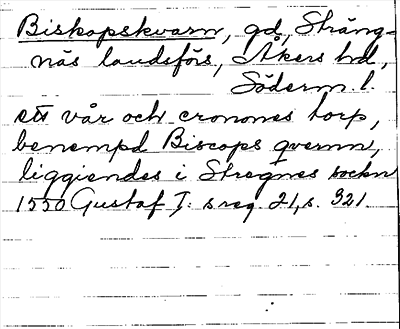 Biskopskvarn, gd, Sträng-
näs landsförs, Åkers hd,
Söderm. l.
ett vår och cronones torp,
benempd Biscops qvernn,
liggiendes i Stregnes sockn
1550 Gustaf I:s reg. 21, s. 321.